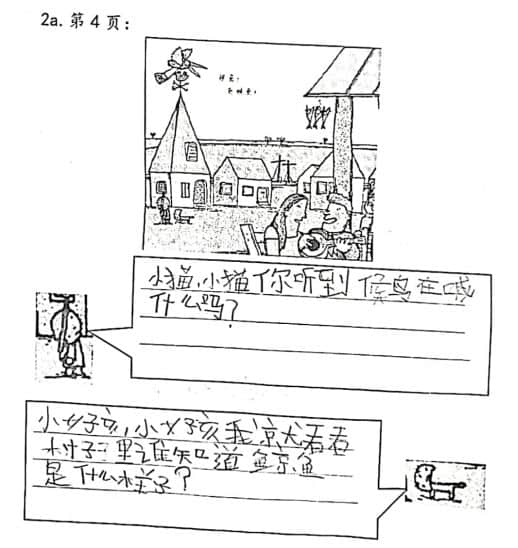 2a. 第 4 页：
小猫,小猫你听到候鸟在喊
什么吗？
小女孩,小女孩我看看
村子里谁知道鲸鱼
是什么样子？